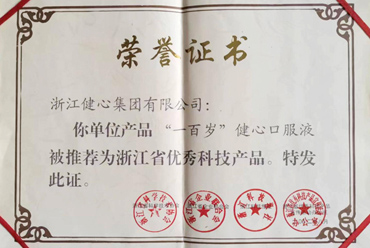 荣誉证书
浙江健心集团有限公司：
你单位产品 “一百岁” 健心口服液
被推荐为浙江省优秀科技产品。特发
此证。